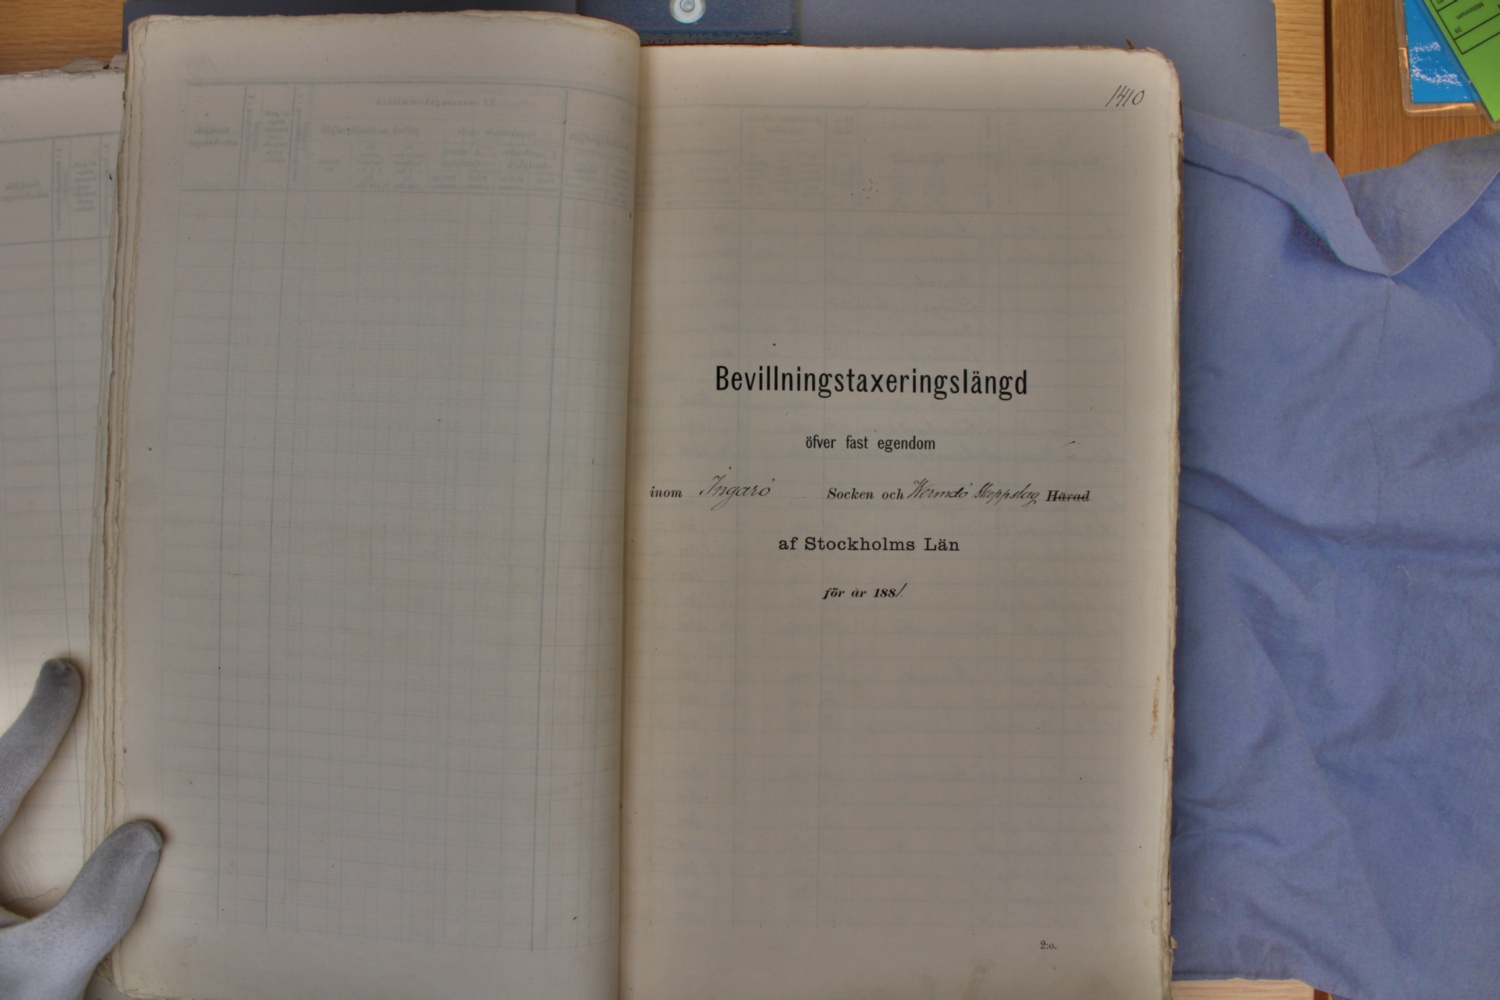 1410
Bevillningstaxeringslängd
öfver fast egendom
inom Ingarö Socken och Wermdö Skeppslag Härad
af Stockholms Län
för år 1881
2:o.